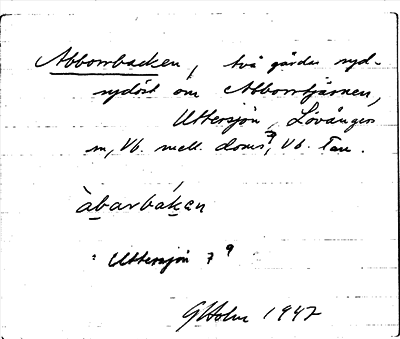 Abborrbacken, två gårdar syd-
sydöst om Abborrtjärnen,
Uttersjön, Lövångers
sn, Vb. mell. doms, Vb. län.
àbarbákan
Uttersjön 7 9
GHolm 1947